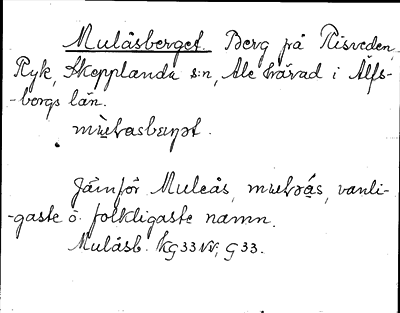 Mulåsberget. Berg på Risveden,
Ryk, Skepplanda s:n, Ale härad i Älfs-
-borgs län.
Jämför Muleås, vanli-
-gaste o. folkligaste namn.
Mulåsb. KG 33 NV; G 33.